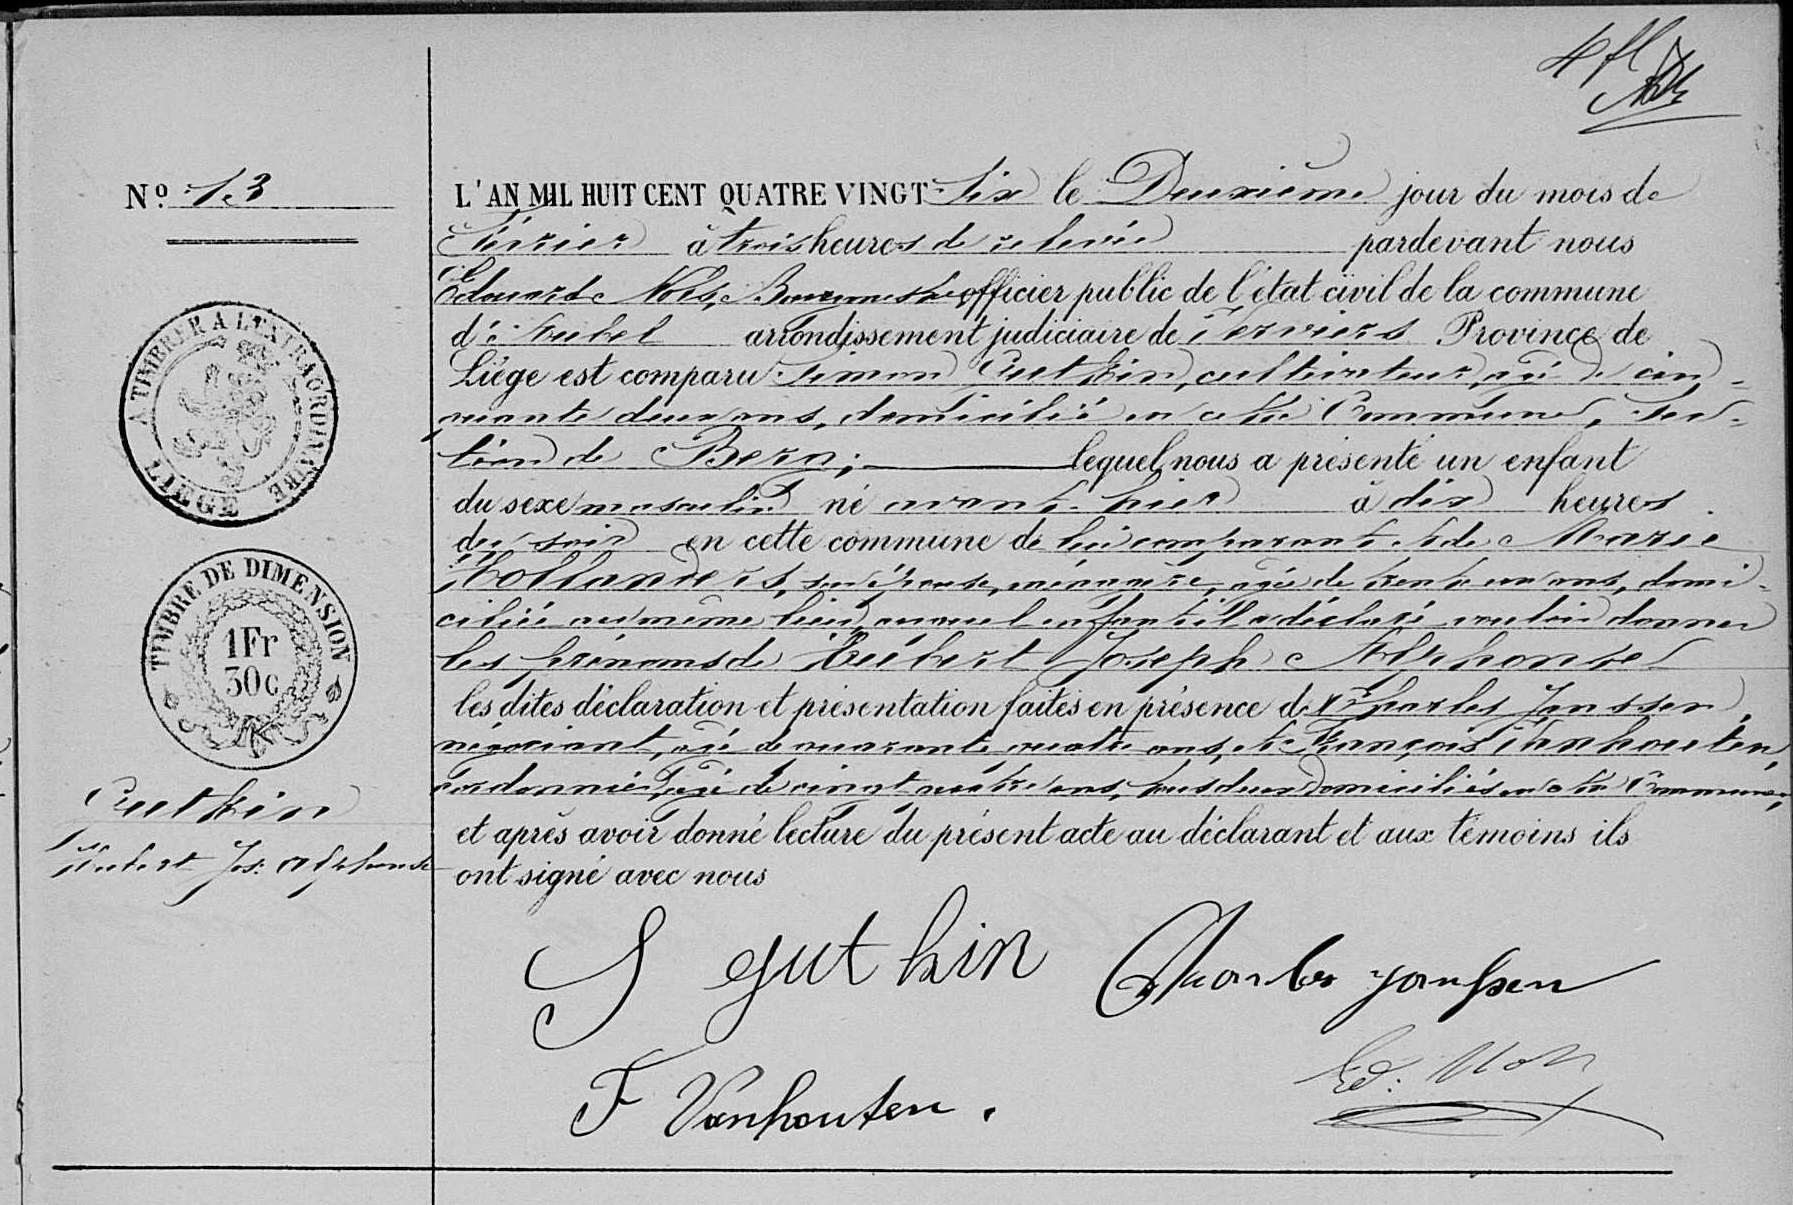 4 fl
Nº 13
L'AN MIL HUIT CENT QUATRE VINGT Six le Deuxième jour du mois de
Février à trois heures de relevée pardevant nous
Edouard Nols, Bourgmestre officier public de l'état civil de la commune
d'Aubel arrondissement judiciaire de Verviers Province de
Liége est comparu Simon Gutkin, cultivateur, agé de cin-
quante deux ans, domicilié en cette Commune, Sec-
tion de Bern; lequel nous a présenté un enfant
du sexe masculin né avant-hier à dix heures
du soir en cette commune de lui comparant et de Marie
Hollanders, son épouse, ménagère, agée de trente un ans, domi-
ciliée au même lieu, auquel enfant il a déclaré vouloir donner
les prénoms de Hubert Joseph Alphonse
les dites déclaration et présentation faites en présence de Charles Janssen,
négociant, agé de quarante quatre ans, et François Vanhouten,
cordonnier, agé de vingt quatre ans, tous deux domiciliés en cette Commune,
et après avoir donné lecture du présent acte au déclarant et aux témoins ils
ont signé avec nous
A TIMBRER A L'EXTRAORDINAIRE
LIEGE
TIMBRE DE DIMENSION
1Fr
30c
Gutkin
Hubert Jos: Alphonse
S gutkin Charles Janssen
Ed: Nols
F Vanhouten.